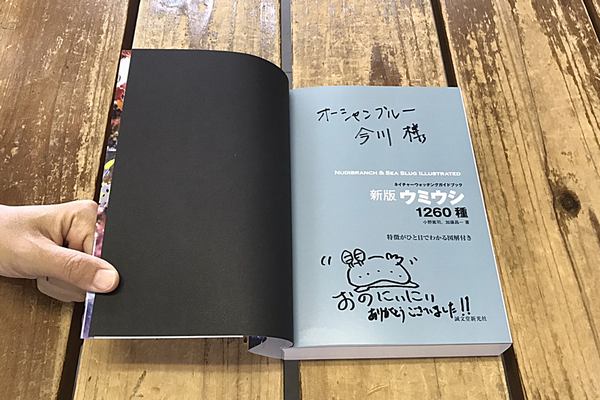 オーシャンブルー
今川 様
NUDIBRANCH & SEA SLUG ILLUSTRATED
ネイチャーウォッチングガイドブック
新版 ウミウシ
1260種
小野篤司、加藤昌一 著
特徴がひと目でわかる図解付き
おのにぃにぃ
ありがとうございました!!
誠文堂新光社